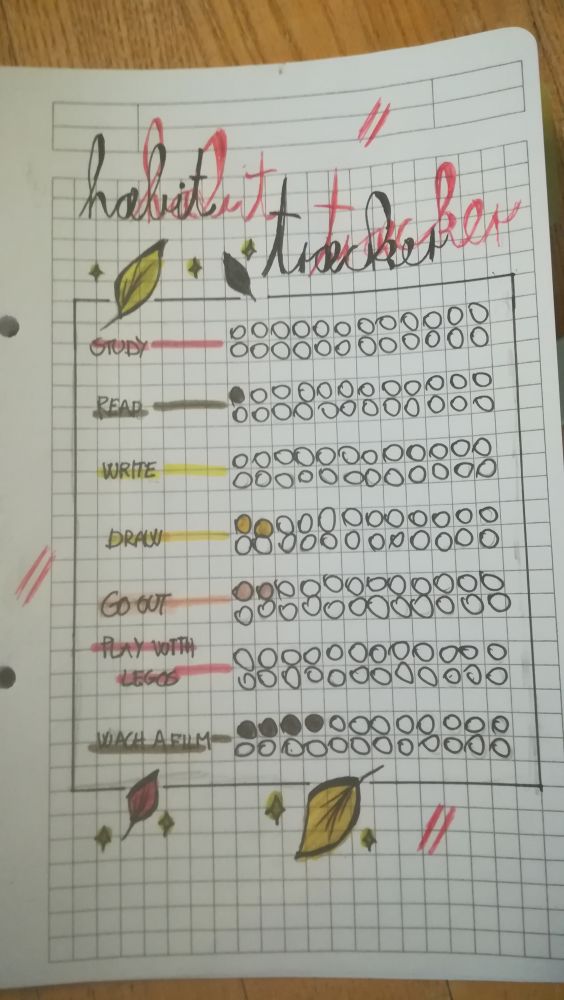 habit
tracker
STUDY
READ
WRITE
DRAW
GO OUT
PLAY WITH
LEGOS
WACH A FILM